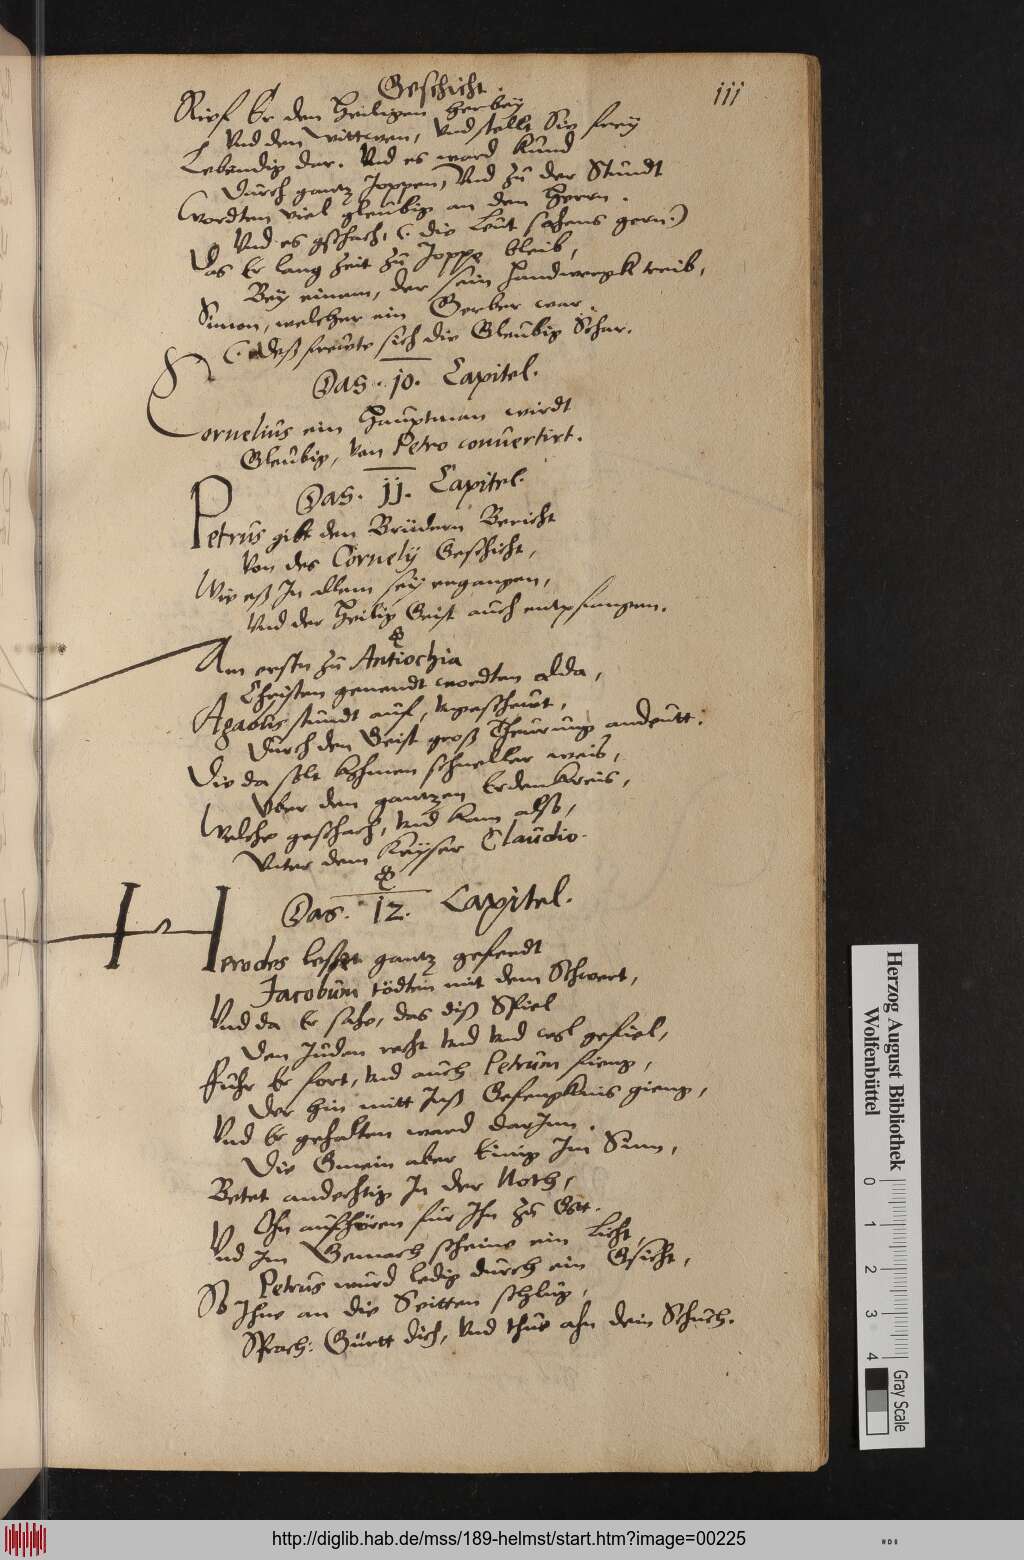 Geschicht.
iii
Rief Er den Heiligen herbey
Vnd den wittwen, Vnd stellt Sie frey
Lebendig dar. Vnd es ward kund
Durch gantz Joppen, Vnd zu der Stundt
Wordten viel gleubig an den Herrn.
Vnd es gschach, (: die Leut sahens gern:)
Das Er lang zeit zu Joppe bleib,
Bey einem, der sein Handwergk treib,
Simon, welcher ein Gerber war.
(: deß frewte sich die Gleubig Schar.
Das. 10. Capitel.
Cornelius ein Hauptman wirdt
Gleubig, von Petro conuertirt.
Das. 11. Capitel.
Petrus gibt den Brüdern Bericht
Von des Cornelij Geschicht,
Wie eß In allem sey ergangen,
Vnd der Heilig Geist auch entpfangen.
Am erstn zu Antiochia
Christen genendt wordten alda,
Agabus stundt auf, vngescheut,
Durch den Geist groß Theurung andeutt.
Die da solt kohmen schneller weis,
Vber den gantzen Erdenkreis,
Welche geschach, vnd kam also,
Vnter dem Keyser Claudio.
Das. 12. Capitel.
Herodes lesset gantz geferdt
Jacobum tödten mit dem Schwert,
Vnd da Er sahe, das diß Spiel
Den Juden recht Vnd Vnd wol gefiel,
Fuhr Er fort, vnd auch Petrum fieng,
Der hin mitt Inß Gefengknis gieng,
Vnd Er gehalten ward darJnn.
Die Gmein aber Einig Im Sinn,
Betet andechtig In der Noth,
Ohn aufhören für Ihn zu Gott.
Vnd Im Gemach scheine ein Licht,
Petrus wurd ledig durch ein Gsicht,
So Ihne an die Seitten schlug,
Sprach: Gürtt dich, Vnd thue ahn dein Schuch.
Herzog August Bibliothek
Wolfenbüttel
0 1 2 3 4
Gray Scale
http://diglib.hab.de/mss/189-helmst/start.htm?image=00225